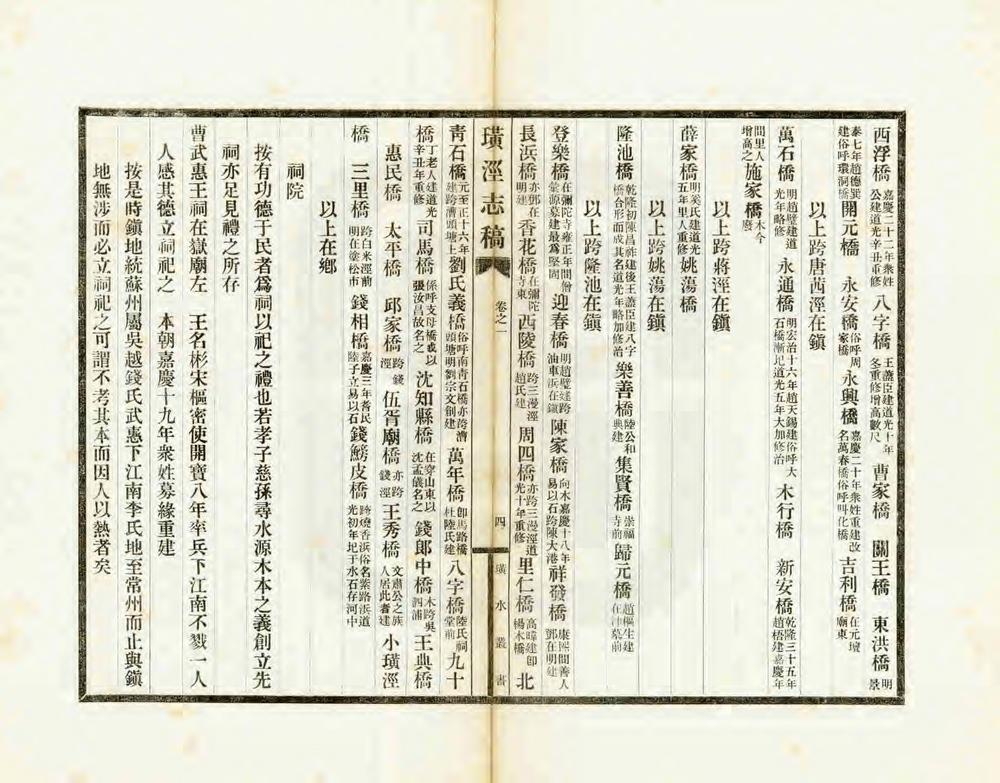 西浮橋嘉慶二十二年衆姓公建道光辛丑重修八字橋王藎臣建道光十年冬重修增高數尺曹家橋 關王橋 東洪橋明景
泰七年趙德巽建俗呼環洞橋開元橋 永安橋俗呼周家橋永興橋嘉慶二十年衆姓重建改名萬春橋俗呼叫化橋吉利橋在元壇廟東
以上跨唐茜涇在鎮
萬石橋明趙璧建道光年略修永通橋明宏治十六年趙天錫建俗呼大石橋漸圮道光五年大加修治木行橋 新安橋乾隆三十五年趙梧建嘉慶年
間里人增高之施家橋木今廢
以上跨蔣涇在鎮
薛家橋明奚氏建道光五年里人重修姚蕩橋
以上跨姚蕩在鎮
隆池橋乾隆初陳昌祚建後王藎臣建八字橋合形而成其名道光年略加修治樂善橋陸公和典建集賢橋崇福寺前歸元橋趙樞生建在津墓前
以上跨隆池在鎮
登樂橋在彌陀寺雍正年間僧彙源募建最爲堅固迎春橋明趙璧建跨油車浜在鎮陳家橋向木嘉慶十八年易以石跨陳大港祥發橋康熙間善人鄧在明建
長浜橋亦鄧在明建香花橋在彌陀寺東西陵橋跨三漫涇趙氏建周四橋亦跨三漫涇道光十年重修里仁橋高暐建卽楊木橋北
璜涇志稿 卷之一 四 璜水叢書
靑石橋元至正十六年建跨漕頭塘上劉氏義橋俗呼南靑石橋亦跨漕頭塘明劉宗文創建萬年橋卽馬路橋杜陸氏建八字橋陸氏祠堂前九十
橋丁老人建道光辛丑年重修司馬橋係呼支母橋或以張汝昌故名之沈知縣橋在穿山東以沈孟儀名之錢郞中橋木跨吳泗浦王典橋
惠民橋 太平橋 邱家橋跨錢涇伍胥廟橋亦跨錢涇王秀橋文肅公之族人居此者建小璜涇
橋 三里橋跨白米涇前明在塗松市錢相橋嘉慶三年耆民陸子立易以石錢鰟皮橋跨燒香浜俗名紫路浜道光初年圮于水石存河中
以上在鄉
祠院
按有功德于民者爲祠以祀之禮也若孝子慈孫尋水源木本之義創立先
祠亦足見禮之所存
曹武惠王祠在嶽廟左 王名彬宋樞密使開寶八年率兵下江南不戮一人
人感其德立祠祀之 本朝嘉慶十九年衆姓募緣重建
按是時鎮地統蘇州屬吳越錢氏武惠下江南李氏地至常州而止與鎮
地無涉而必立祠祀之可謂不考其本而因人以熱者矣